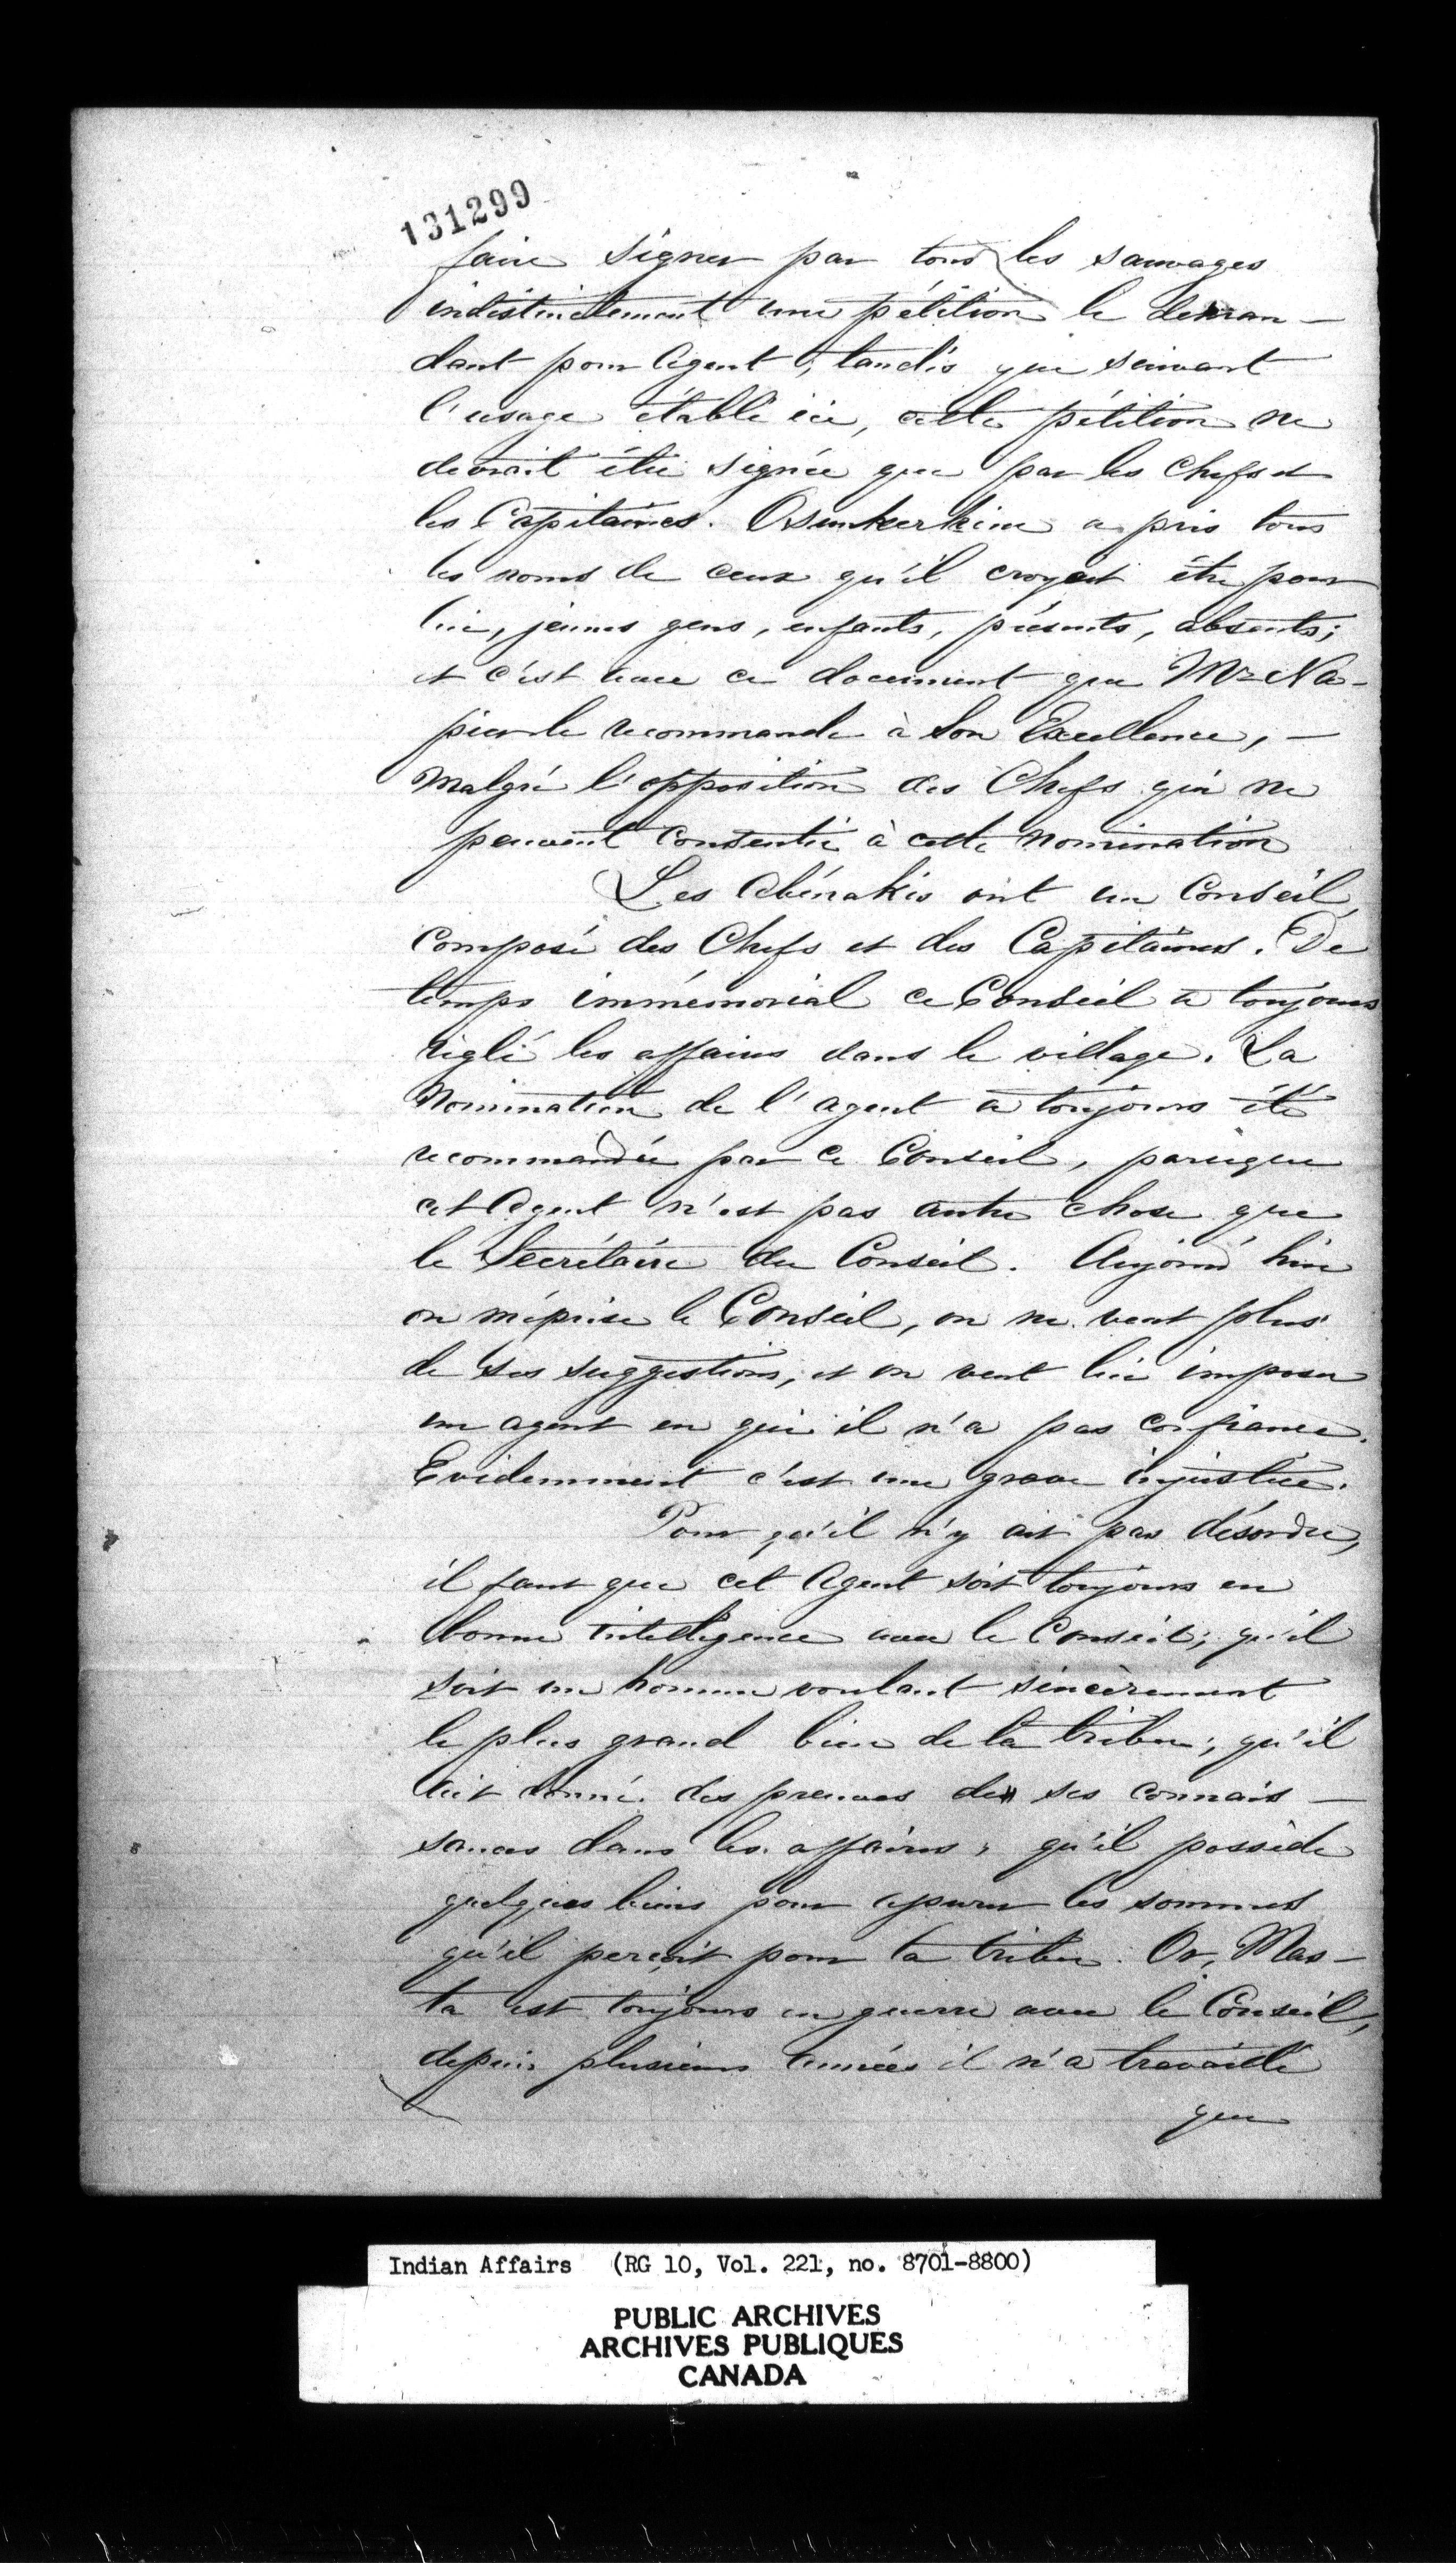 131299
faire signer par tous les sauvages
indistinctement une pétition le deman-
dant pour Agent, tandis que suivant
l'usage établi ici, cette pétition ne
devrait être signée que par les Chefs et
les Capitaines. Osunkerhine a pris tous
les noms de ceux qu'il croyait être pour
lui, jeunes gens, enfants, présents, absents;
et c'est avec ce document que Mr Na-
pier le recommande à Son Excellence, -
Malgré l'opposition des Chefs qui ne
peuvent consentir à cette nomination
Les Abénakis ont un Conseil,
composé des Chefs et des Capitaines. De
temps immémorial ce Conseil a toujours
réglé les affaires dans le village. La
Nomination de l'agent a toujours été
recommandée par ce Conseil, parceque
cet Agent n'est pas autre chose que
le Secrétaire du Conseil. Aujourd'hui
on méprise le Conseil, on ne veut plus
de ses suggestions, et on veut lui imposer
un agent en qui il n'a pas confiance.
Evidemment c'est une grave injustice.
Pour qu'il n'y ait pas désordre,
il faut que cet Agent soit toujours en
bonne intelligence avec le Conseil; qu'il
soit un homme voulant sincèrement
le plus grand bien de la tribu; qu'il
ait donné des preuves de ses connais-
sances dans les affaires; qu'il possède
quelques biens pour assurer les sommes
qu'il perçoit pour la tribu. Or, Mas-
ta est toujours en guerre avec le Conseil,
depuis plusieurs années il n'a travaillé
que
Indian Affairs (RG 10, Vol. 221, no. 8701-8800)
PUBLIC ARCHIVES
ARCHIVES PUBLIQUES
CANADA